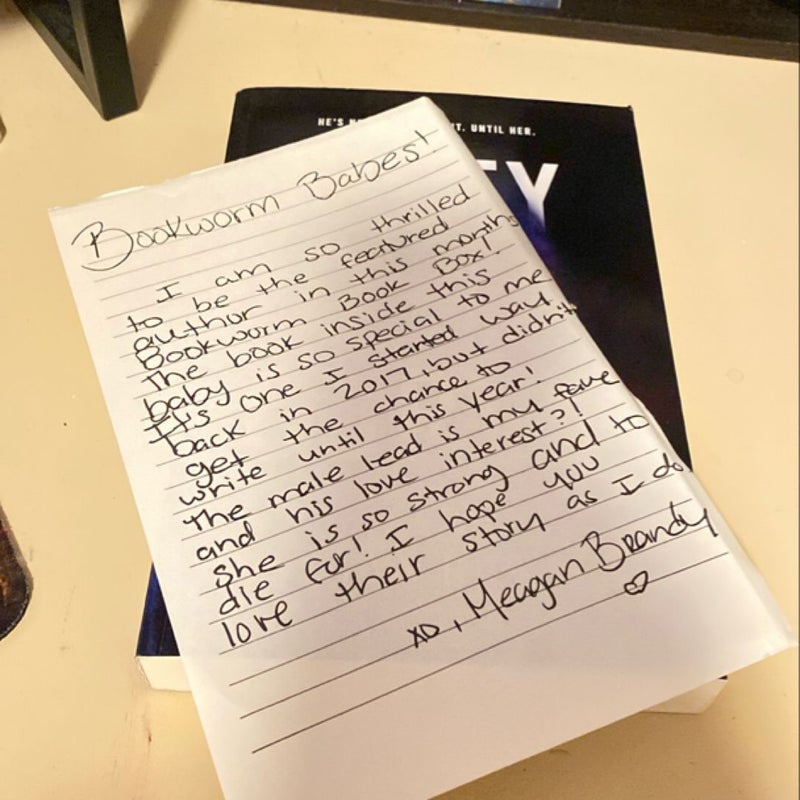 HE'S T. UNTIL HER.
EY
Bookworm Babes!
I am so thrilled
to be the featured
author in this months
Bookworm Book Box!
The book inside this
baby is so special to me
It's one I started way
back in 2017, but didn't
get the chance to
write until this year!
The male lead is my fave
and his love interest?!
She is so strong and to
die for! I hope you
love their story as I do
xo, Meagan Brandy